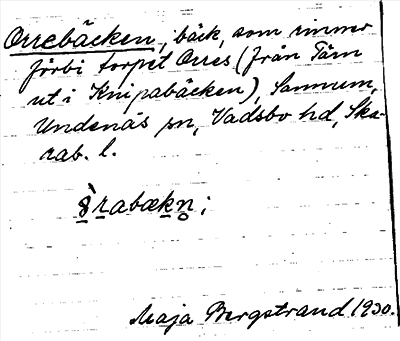 Orrebäcken, bäck, som rinner
förbi torpet Orres (från Tärn
ut i Knipabäcken), Sannum,
Undenäs sn, Vadsbo hd, Ska-
rab. l.
òrabækn;
Maja Bergstrand 1930.